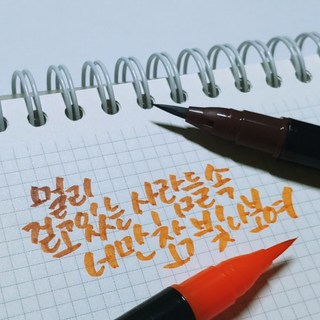 멀리
걷고있는 사람들속
너만 참 빛나보여